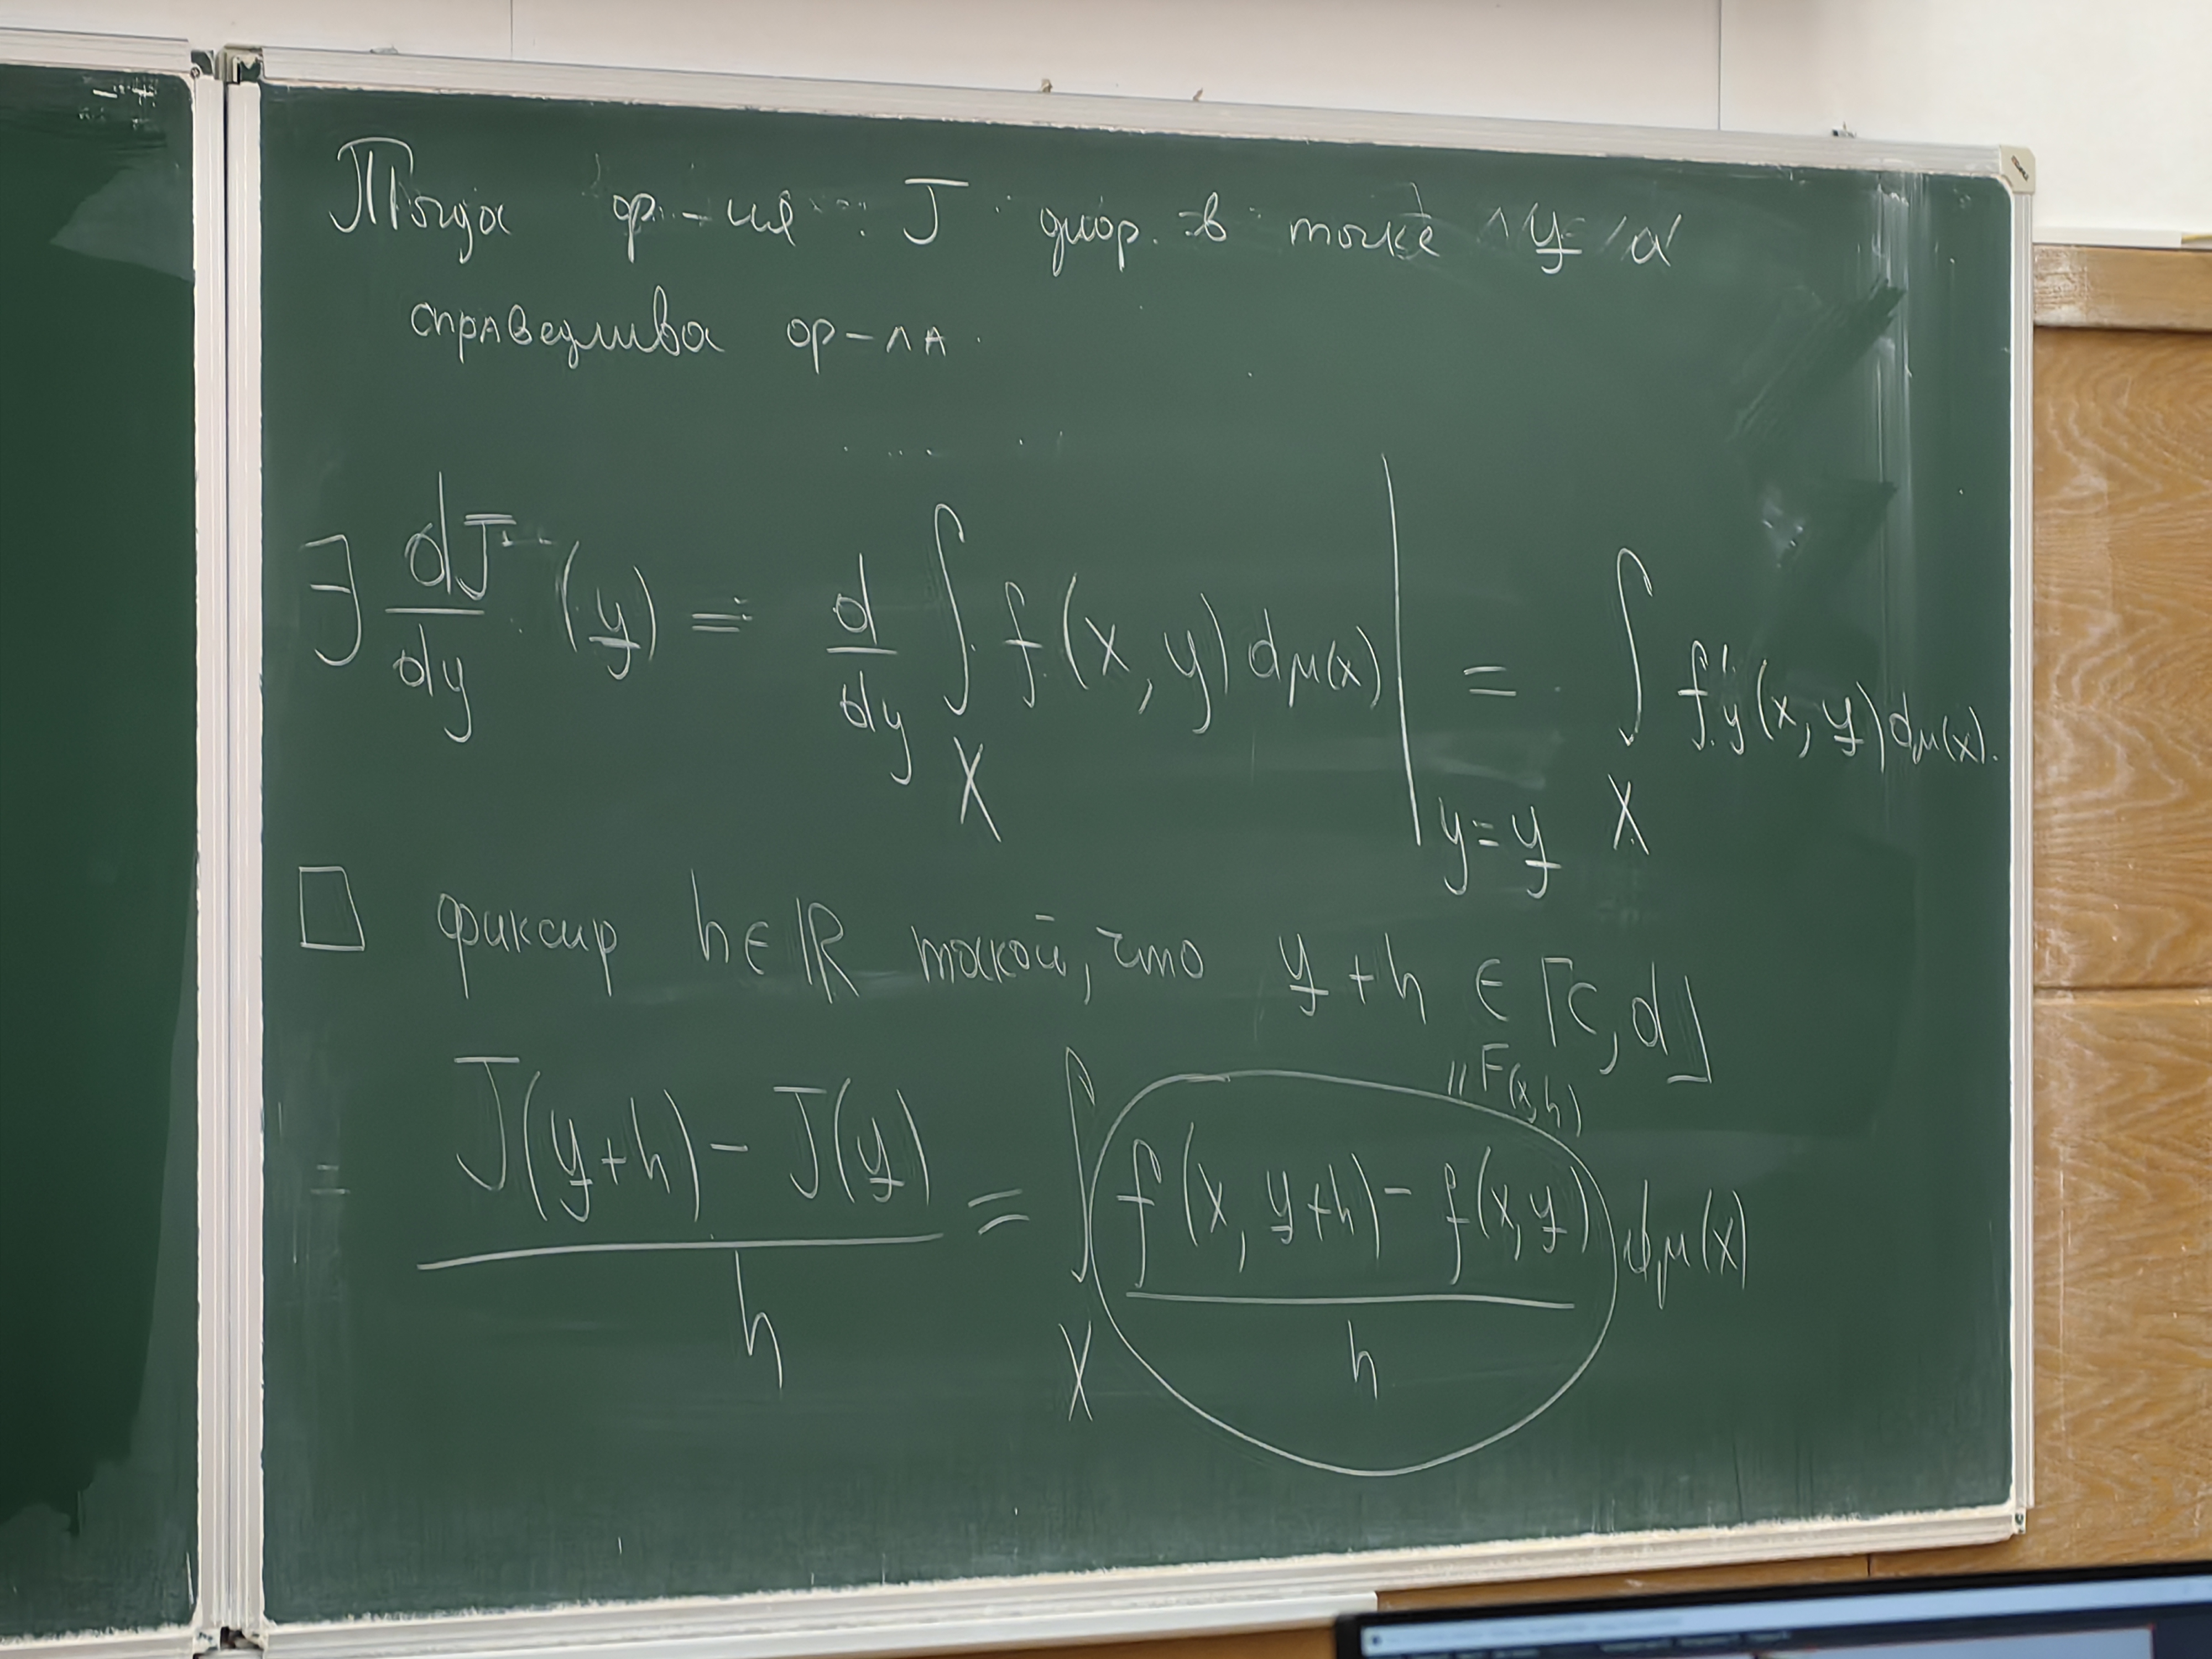 Тогда ф-ия J диф. в точке y̲ и
справедлива ф-ла
∃ dJ/dy (y̲) = d/dy ∫_X f(x, y) dμ(x) |_{y=y̲} = ∫_X f'_y(x, y̲) dμ(x).
□ фиксир h∈ℝ такой, что y̲ + h ∈ [c, d]
= (J(y̲+h) − J(y̲))/h = ∫_X (f(x, y̲+h) − f(x, y̲))/h dμ(x)
"F(x,h)